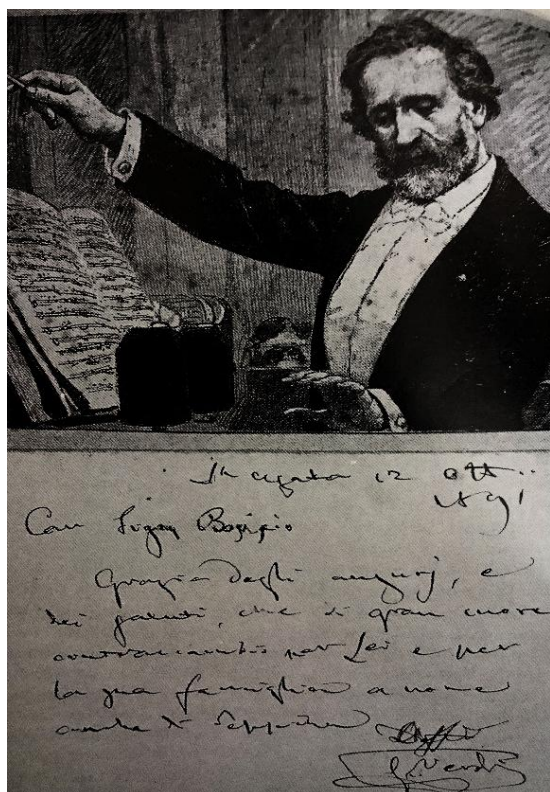 St Agata 12 Ott.
1891
Car Signor
Grazie degli augurj, e
dei saluti, che di gran cuore
contraccambio per Lei e per
la sua famiglia a nome
anche di Peppina
G. Verdi